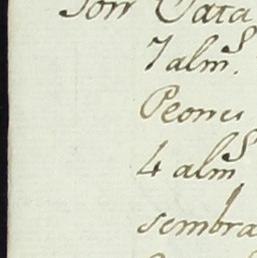 Son Data
7 alm.s
Peones
4 alms
sembra